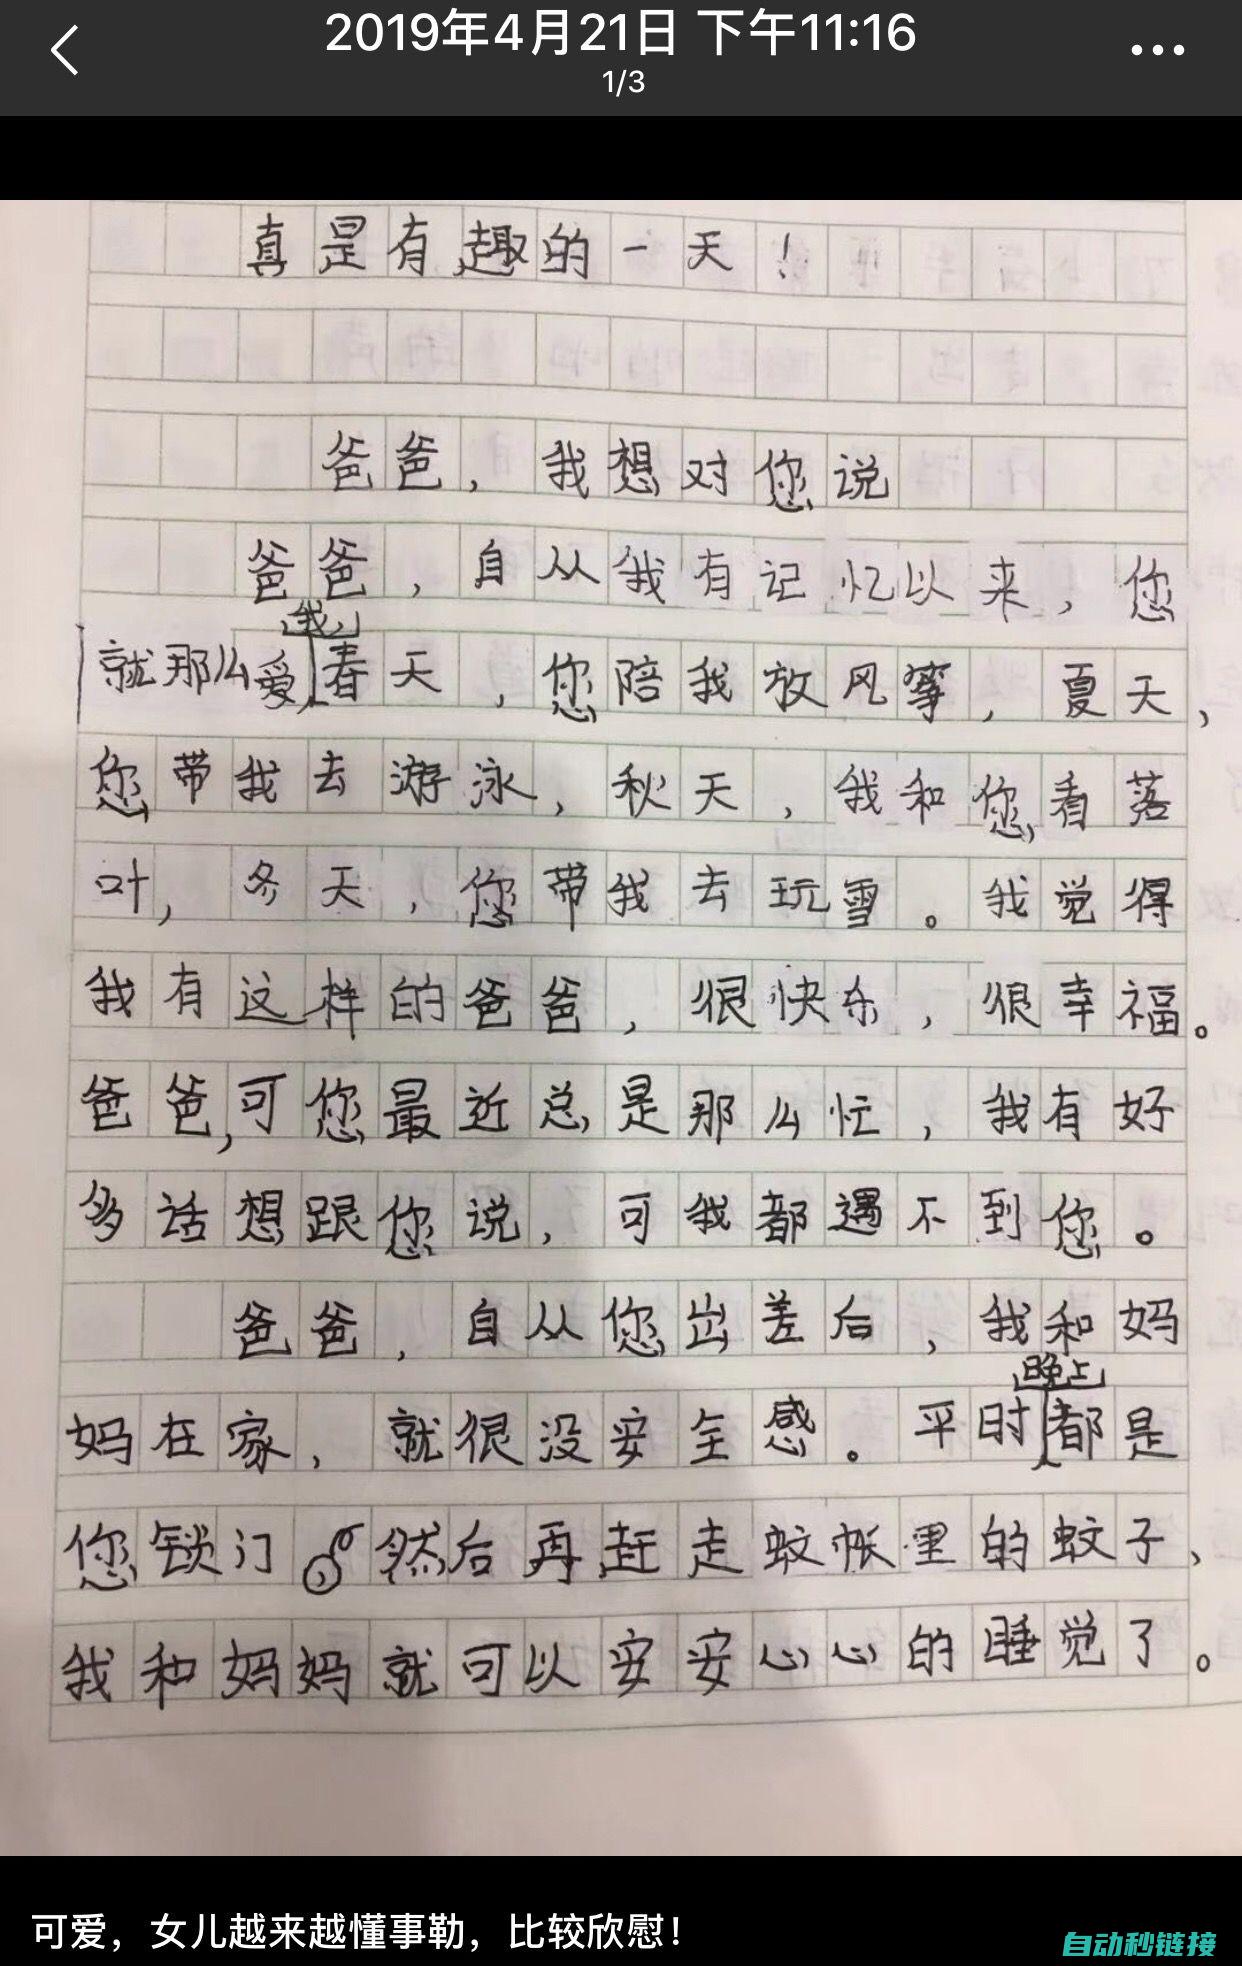 2019年4月21日 下午11:16
1/3
真是有趣的一天！
爸爸，我想对您说
爸爸，自从我有记忆以来，您
我，
就那么爱春天，您陪我放风筝，夏天，
您带我去游泳，秋天，我和您看落
叶，冬天，您带我去玩雪。我觉得
我有这样的爸爸，很快乐，很幸福。
爸爸，可您最近总是那么忙，我有好
多话想跟您说，可我都遇不到您。
爸爸，自从您出差后，我和妈
晚上
妈在家，就很没安全感。平时都是
您锁门，然后再赶走蚊帐里的蚊子，
我和妈妈就可以安安心心的睡觉了。
可爱，女儿越来越懂事勒，比较欣慰！
自动秒链接